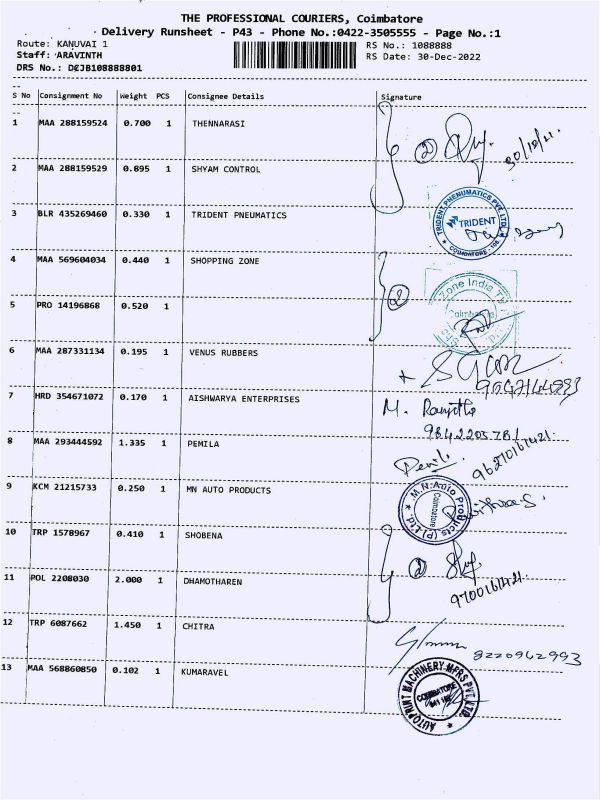 THE PROFESSIONAL COURIERS, Coimbatore
Delivery Runsheet - P43 - Phone No.:0422-3505555 - Page No.:1
Route: KANUVAI 1 RS No.: 1088888
Staff: ARAVINTH RS Date: 30-Dec-2022
DRS No.: DCJB108888801
S No Consignment No Weight PCS Consignee Details Signature
1 MAA 288159524 0.700 1 THENNARASI
2 MAA 288159529 0.895 1 SHYAM CONTROL
3 BLR 435269460 0.330 1 TRIDENT PNEUMATICS
TRIDENT PNEUMATICS PVT. LTD.
TRIDENT
COIMBATORE
4 MAA 569604034 0.440 1 SHOPPING ZONE
Zone India
5 PRO 14196868 0.520 1
6 MAA 287331134 0.195 1 VENUS RUBBERS
7 HRD 354671072 0.170 1 AISHWARYA ENTERPRISES
M. Ranjitha
8 MAA 293444592 1.335 1 PEMILA
9 KCM 21215733 0.250 1 MN AUTO PRODUCTS
M.N. Auto Products (P) Ltd
Coimbatore
10 TRP 1578967 0.410 1 SHOBENA
11 POL 2208030 2.000 1 DHAMOTHAREN
12 TRP 6087662 1.450 1 CHITRA
8220962993
13 MAA 568860850 0.102 1 KUMARAVEL
AUTOPRINT MACHINERY MFRS PVT. LTD.
COIMBATORE